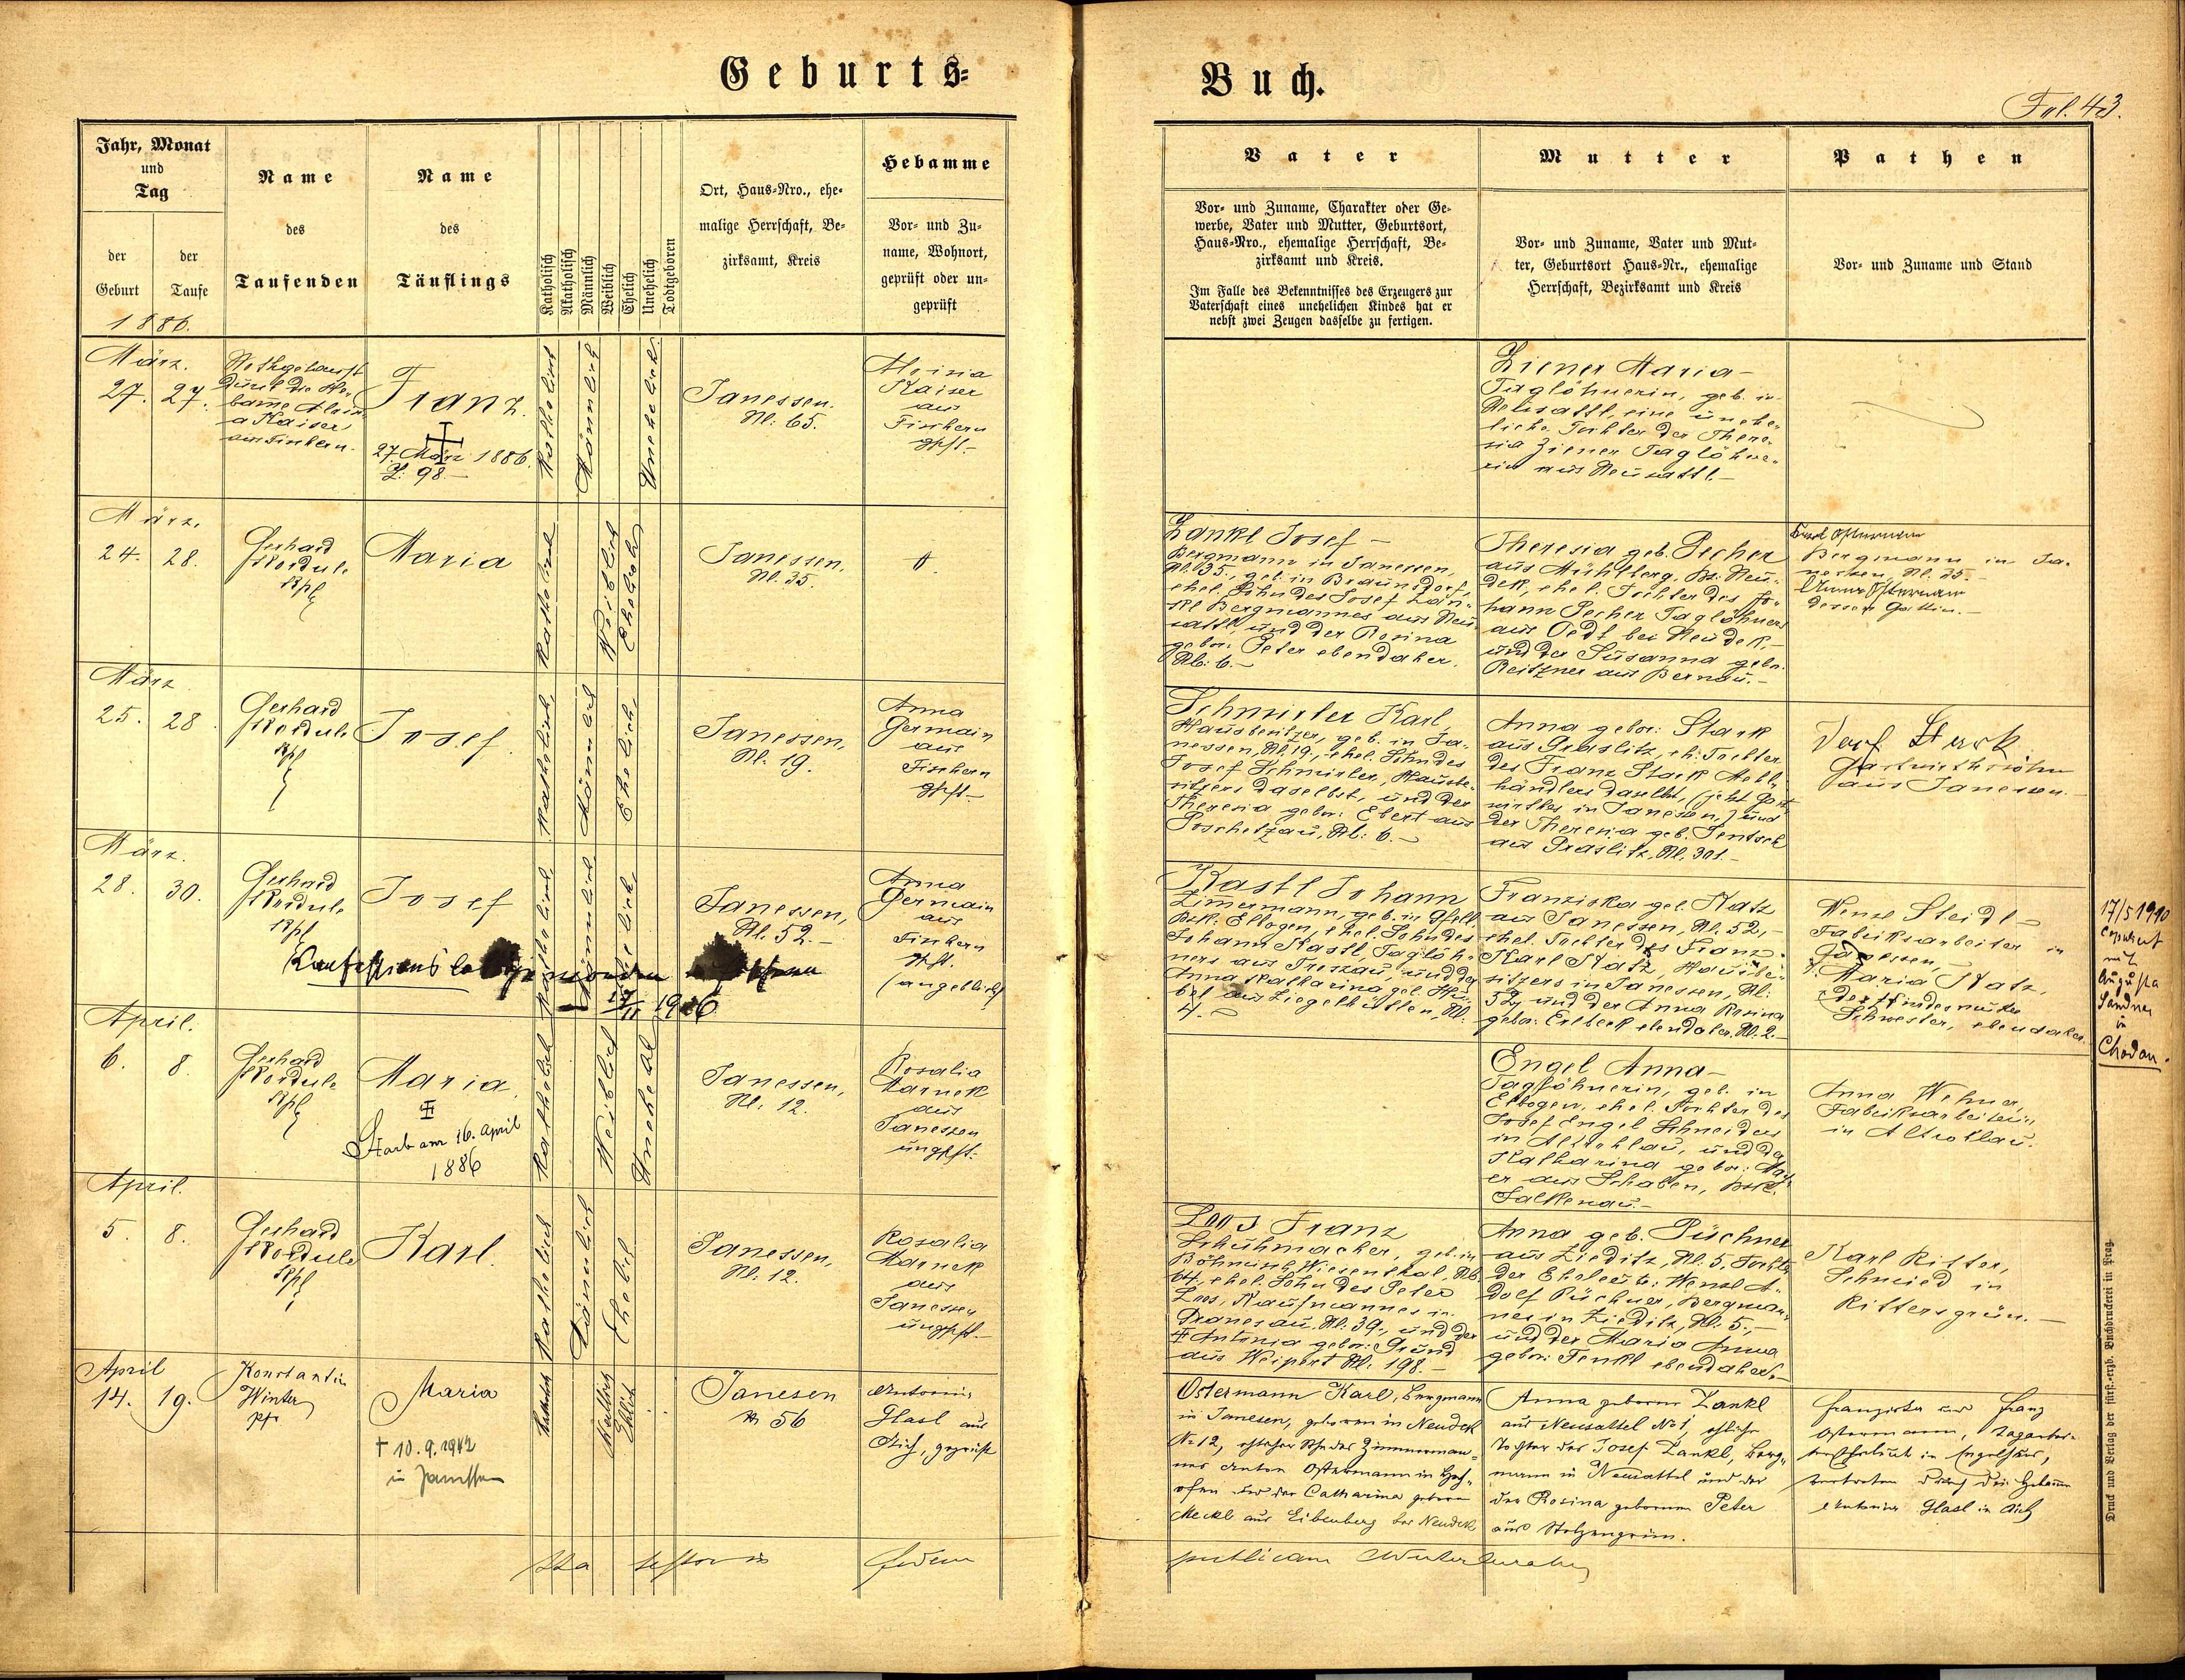 Geburts=
Buch.
Fol. 43.
Jahr, Monat
und
Tag
der
Geburt
der
Taufe
1886.
Name
des
Taufenden
Name
des
Täuflings
Katholisch
Akatholisch
Männlich
Weiblich
Ehelich
Unehelich
Todtgeboren
Ort, Haus=Nro., ehe=
malige Herrschaft, Be=
zirksamt, Kreis
Hebamme
Vor= und Zu=
name, Wohnort,
geprüft oder un=
geprüft
Vater
Vor= und Zuname, Charakter oder Ge=
werbe, Vater und Mutter, Geburtsort,
Haus=Nro., ehemalige Herrschaft, Be=
zirksamt und Kreis.
Im Falle des Bekenntnisses des Erzeugers zur
Vaterschaft eines unehelichen Kindes hat er
nebst zwei Zeugen dasselbe zu fertigen.
Mutter
Vor= und Zuname, Vater und Mut=
ter, Geburtsort Haus=Nr., ehemalige
Herrschaft, Bezirksamt und Kreis
Pathen
Vor= und Zuname und Stand
März.
27. 27.
Nothgetauft
durch die He=
bamme
a Kaiser
aus Fischern.
Franz.
27. März 1886.
Z: 98.
Katholisch
Männlich
Unehelich
Janessen.
Nl: 65.
Kaiser
aus
Fischern
gpft.
Ziener Maria –
Taglöhnerin, geb. in
Neusattl, eine unehe=
liche Tochter der There=
sia Ziener Taglöhne=
rin aus Neusattl. –
März.
24. 28.
Gerhard
Kordule
Kpl
Maria
Katholisch
Weiblich
Ehelich
Janessen,
Nl. 35.
Zankl Josef –
Bergmann in Janessen,
Nl. 35, geb. in Braunsdorf,
ehel. Sohn des Josef Zan=
kl Bergmannes aus Neu=
sattl, und der Rosina
gebor: Peter ebendaher.
Nl: 6. –
Theresia geb. Pecher
aus Mühlberg, Bz. Neu=
dek, ehel. Tochter des Jo=
hann Pecher Taglöhners
aus Oedt bei Neudek, –
und der Susanna gebor.
Reitzner aus Bernau. –
Karl Ostermann
Bergmann in Ja=
nessen, Nl. 35. –
Anna Ostermann
dessen Gattin. –
März
25. 28.
Gerhard
Kordule
Kpl
Josef.
Katholisch,
Männlich
Ehelich,
Janessen,
Nl. 19.
Anna
Germain
aus
Fischern
gpft. –
Schmirler Karl,
Hausbesitzer, geb. in Ja=
nessen, Nl. 19, ehel. Sohn des
Josef Schmirler, Hausbe=
sitzers daselbst, und der
Theresia gebor: Ebert aus
Poschetzau, Nl: 6. –
Anna gebor: Stark
aus Graslitz, eh: Tochter
des Franz Stark Mehl=
händlers daselbst, (jetzt Gast=
wirthes in Janessen,) und
der Theresia geb.
aus Graslitz, Nl. 301. –
Josef Stark
Gastwirthssohn
aus Janessen.
März.
28. 30.
Gerhard
Kordule
Kpl
Josef
Katholisch,
Männlich
Ehelich,
Janessen,
Nl. 52. –
Anna
Germain
aus
Fischern
gpft.
(angeblich)
1926
Kastl Johann
Zimermann, geb. in Gfell,
Bzk. Elbogen, ehel. Sohn des
Johann Kastl, Taglöh=
ners aus und der
Anna Katharina geb.
aus Ziegelhütten, Nl.
4. –
Franziska geb. Katz
aus Janessen, Nl. 52, –
ehel. Tochter des Franz
Karl Katz, Hausbe=
sitzers in Janessen, Nl:
52, und der Anna Rosina
gebor: Erlbeck ebendaher. Nl. 2. –
Wenzl Steidl –
Fabriksarbeiter in
Janessen,
Maria Katz,
der Kindesmutter
Schwester, ebendaher.
17/5 1910
copuliert
mit
Augusta
Sandner
in
Chodau.
April.
6. 8.
Gerhard
Kordule
Kpl
Maria.
Starb am 16. April
1886
Katholisch
Weiblich
Unehelich
Janessen,
Nl. 12.
Rosalia
Marnek
aus
Janessen
ungpft.
Engel Anna –
Taglöhnerin, geb. in
Elbogen, ehel. Tochter des
Josef Engel Schneiders
in Altrohlau, und der
Katharina gebor:
er aus Schaben, Bzk.
Falkenau. –
Anna Wehner,
Fabriksarbeiterin,
in Altrohlau.
April.
5. 8.
Gerhard
Kordule
Kpl
Karl.
Katholisch
Männlich
Ehelich
Janessen,
Nl. 12.
Rosalia
Marnek
aus
Janessen
ungpft. –
Loos Franz
Schuhmacher, geb. in
Böhmisch Wiesenthal, Nl.
64, ehel. Sohn des Peter
Loos, Kaufmannes in
Dranesau. Nl. 39., und der
Antonia gebor: Grund
aus Weipert Nl: 198. –
Anna geb. Püchner
aus Zieditz, Nl. 5, Tochter
der Eheleute: Wenzl A=
dolf Püchner, Bergman=
nes in Zieditz, Nl. 5, –
und der Maria Anna
gebor: Fenkl ebendaher. –
Karl Ritter,
Schmied in
Rittersgrün. –
April
14. 19.
Konstantin
Winter
Pfr
Maria
† 10.9.1942
in Janessen
Katholisch
Weiblich
Ehlich
Janesen
№ 56
Antonia
Glasl aus
Aich, geprüft
Ostermann Karl, Bergmann
in Janesen, geboren in Neudek
№ 12, ehlicher Sohn des Zimmerman=
nes Anton Ostermann in Hoch=
ofen und der Catharina geboren
Meckl aus Eibenberg bei Neudek
Anna geborne Zankl
aus Neusattel № 1, ehliche
Tochter des Josef Zankl, Berg=
mann in Neusattel und der
der Rosina gebornen Peter
aus Stelzengrün.
Franziska und Franz
Ostermann, Tagarbei=
in Engelhaus,
vertreten durch die Hebamme
Antonia Glasl in Aich
Ita testor in fidem publicam Winter
Druck und Verlag der fürst.=erzb. Buchdruckerei in Prag.